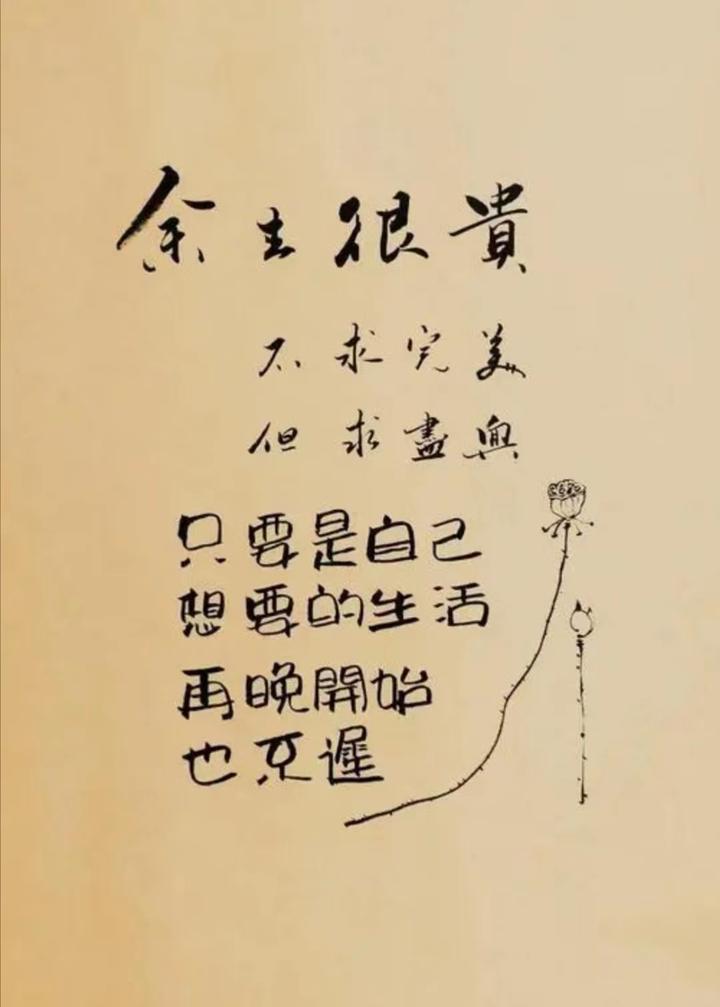 余生很貴
不求完美
但求盡興
只要是自己
想要的生活
再晚開始
也不遲